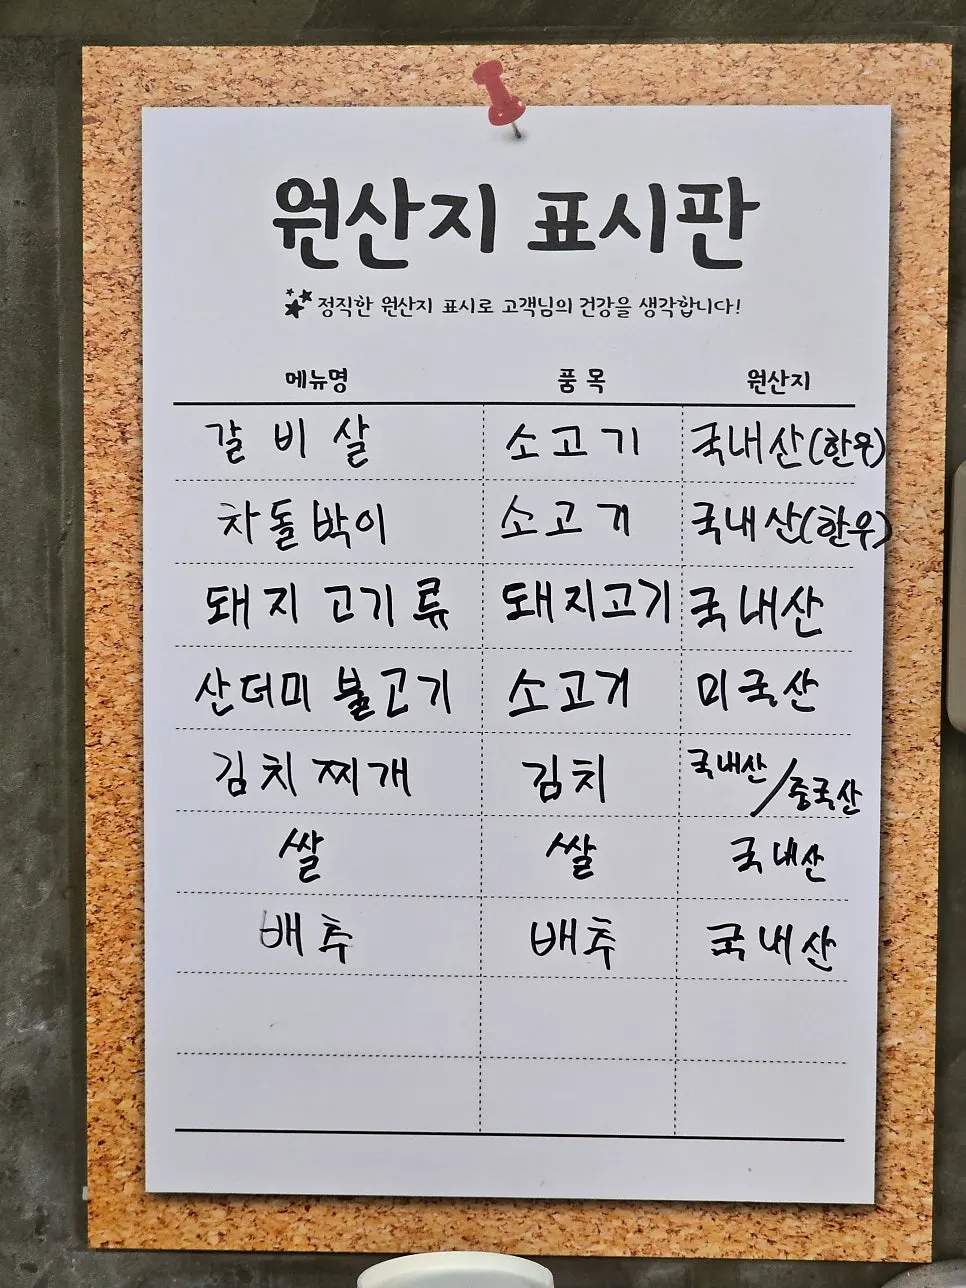 원산지 표시판
정직한 원산지 표시로 고객님의 건강을 생각합니다!
메뉴명 품 목 원산지
갈비살 소고기 국내산(한우)
차돌박이 소고기 국내산(한우)
돼지고기류 돼지고기 국내산
산더미 불고기 소고기 미국산
김치찌개 김치 국내산/중국산
쌀 쌀 국내산
배추 배추 국내산